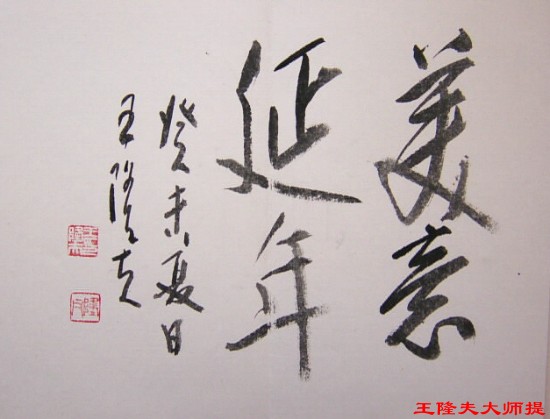 美意
延年
癸未夏日
王隆夫
王隆夫大师提